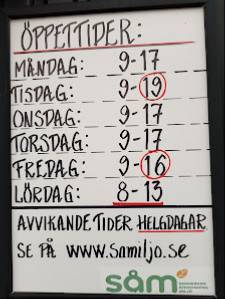 ÖPPETTIDER:
MÅNDAG: 9-17
TISDAG: 9-19
ONSDAG: 9-17
TORSDAG: 9-17
FREDAG: 9-16
LÖRDAG: 8-13
AVVIKANDE TIDER HELGDAGAR
SE PÅ www.samiljo.se
såm